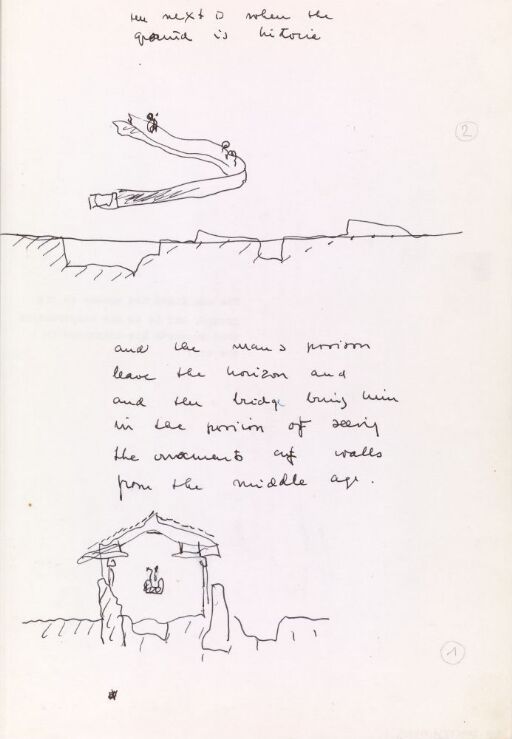 next when the
ground is historic
2
and the mans posison
leave the horizon and
and the bridge bring him
in the posison of seeing
the ornaments of walls
from the middle age.
1